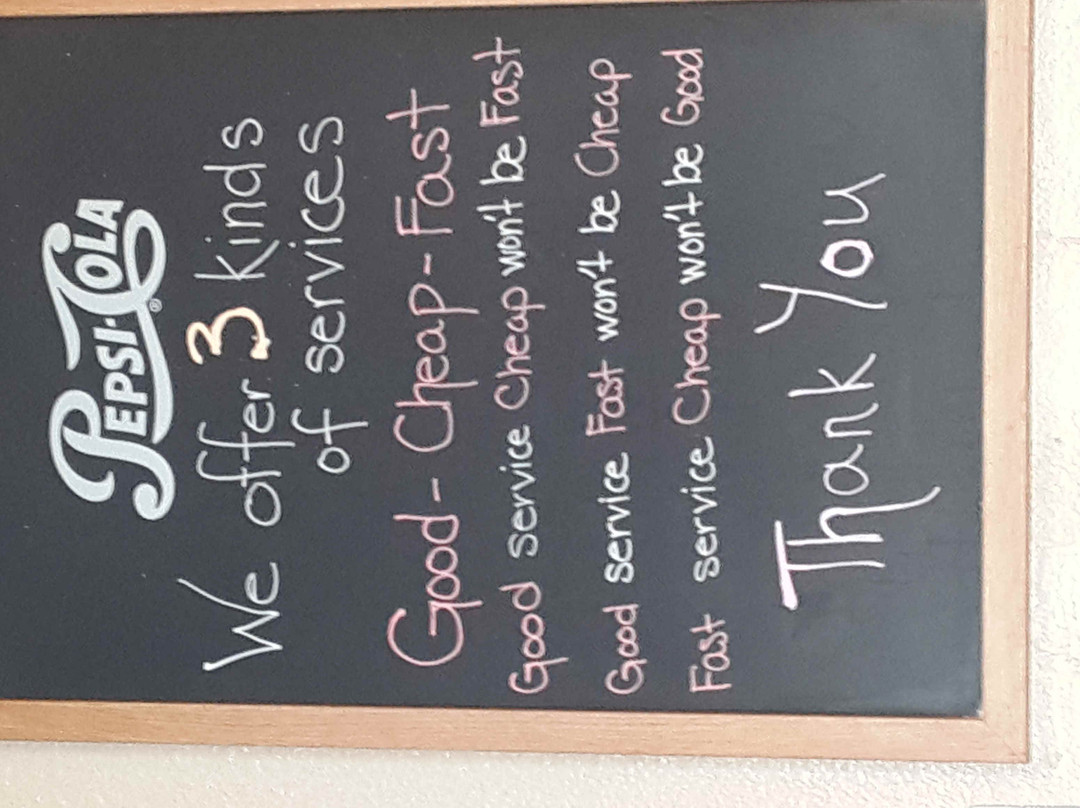 PEPSI-COLA®
We offer 3 kinds
of services
Good - Cheap - Fast
Good service Cheap won't be Fast
Good service Fast won't be Cheap
Fast service Cheap won't be Good
Thank You